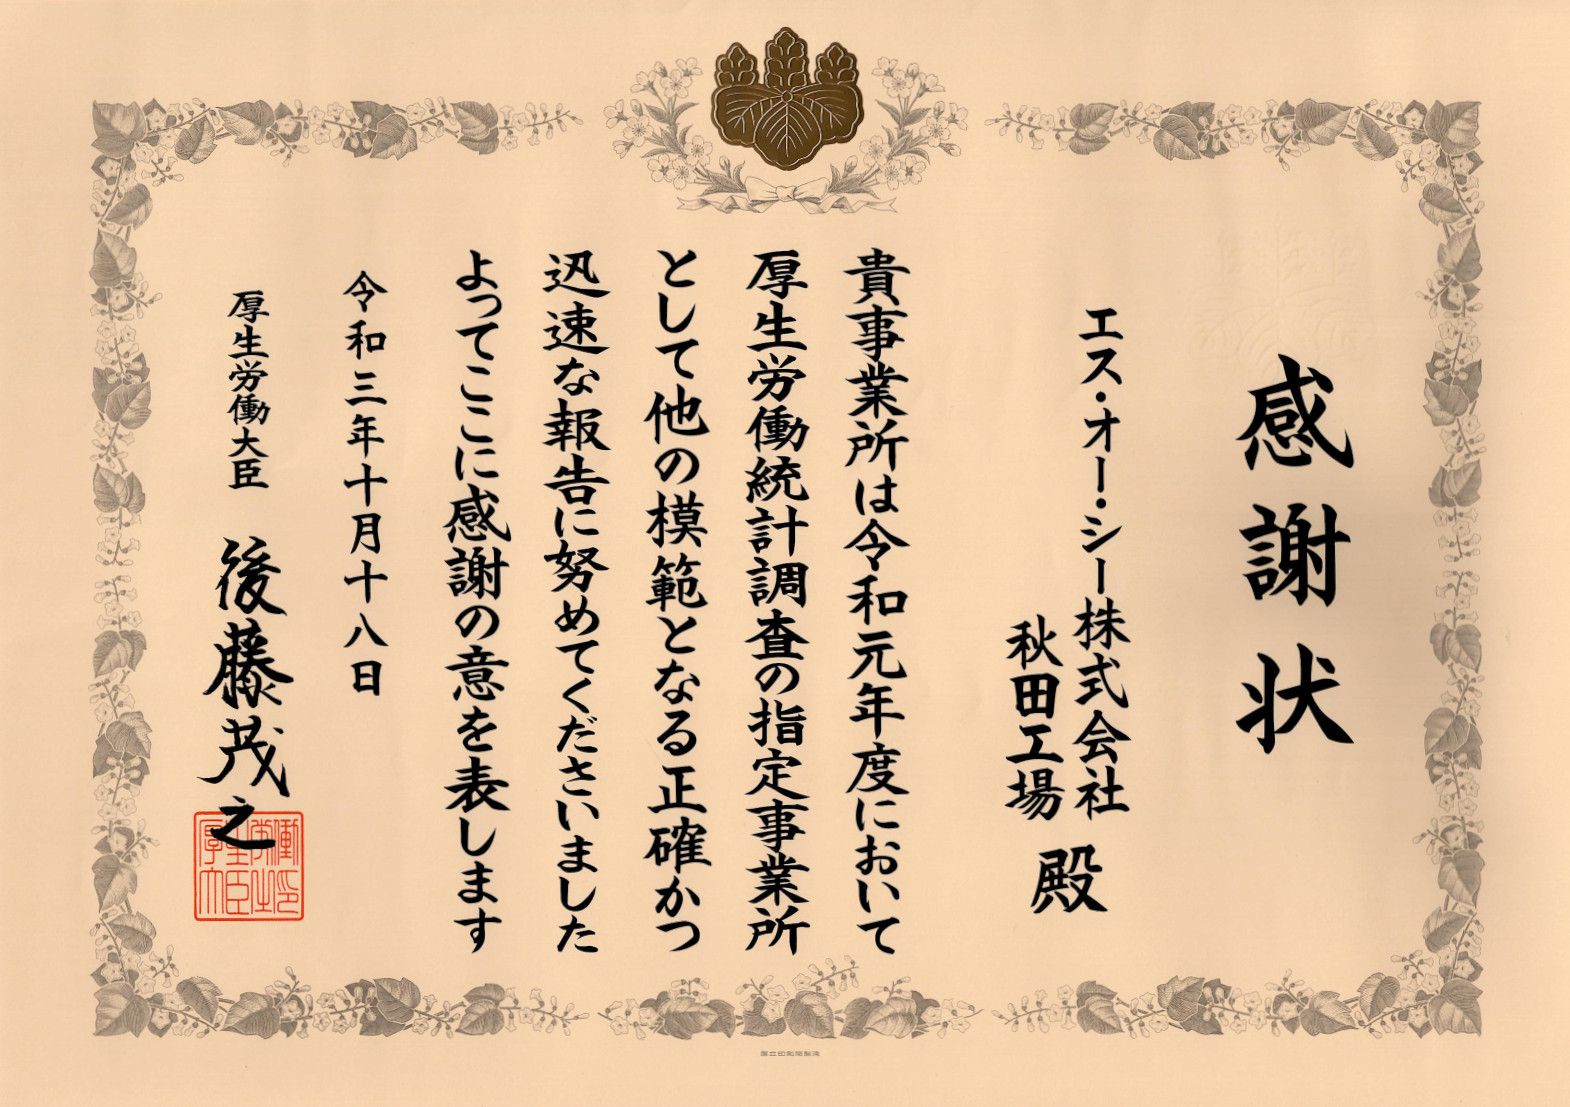 感謝状
エス・オー・シー株式会社
秋田工場
殿
貴事業所は令和元年度において
厚生労働統計調査の指定事業所
として他の模範となる正確かつ
迅速な報告に努めてくださいました
よってここに感謝の意を表します
令和三年十月十八日
厚生労働大臣 後藤茂之
国立印刷局製造